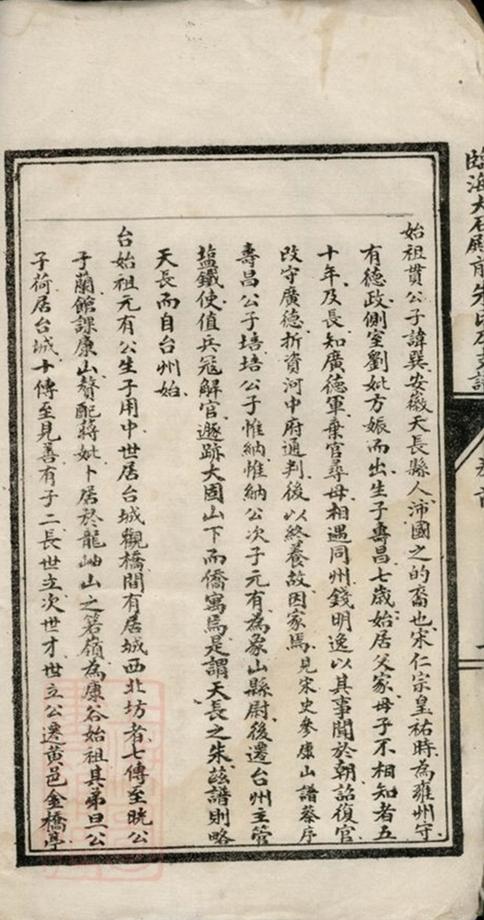 臨海大石殿前朱氏
卷首
始祖貫公子諱巽安徽天長縣人沛國之的裔也宋仁宗皇祐時為雍州守
有德政側室劉妣方娠而出生子壽昌七歲始居父家母子不相知者五
十年及長知廣德軍棄官尋母相遇同州錢明逸以其事聞於朝詔復官
改守廣德折資河中府通判後以終養故因家焉見宋史參康山譜蔡序
壽昌公子培培公子惟納惟納公次子元有為象山縣尉後遷台州主管
塩鐵使值兵寇解官遯跡大固山下而僑寓焉是謂天長之朱茲譜則略
天長而自台州始
台始祖元有公生子用中世居台城觀橋間有居城西北坊者七傳至晄公
子蘭館課康山贅配蔣妣卜居於龍岫山之箬嶺為康谷始祖其弟旦公
子荷居台城十傳至見善有子二長世立次世才世立公遷黃邑金橋亭